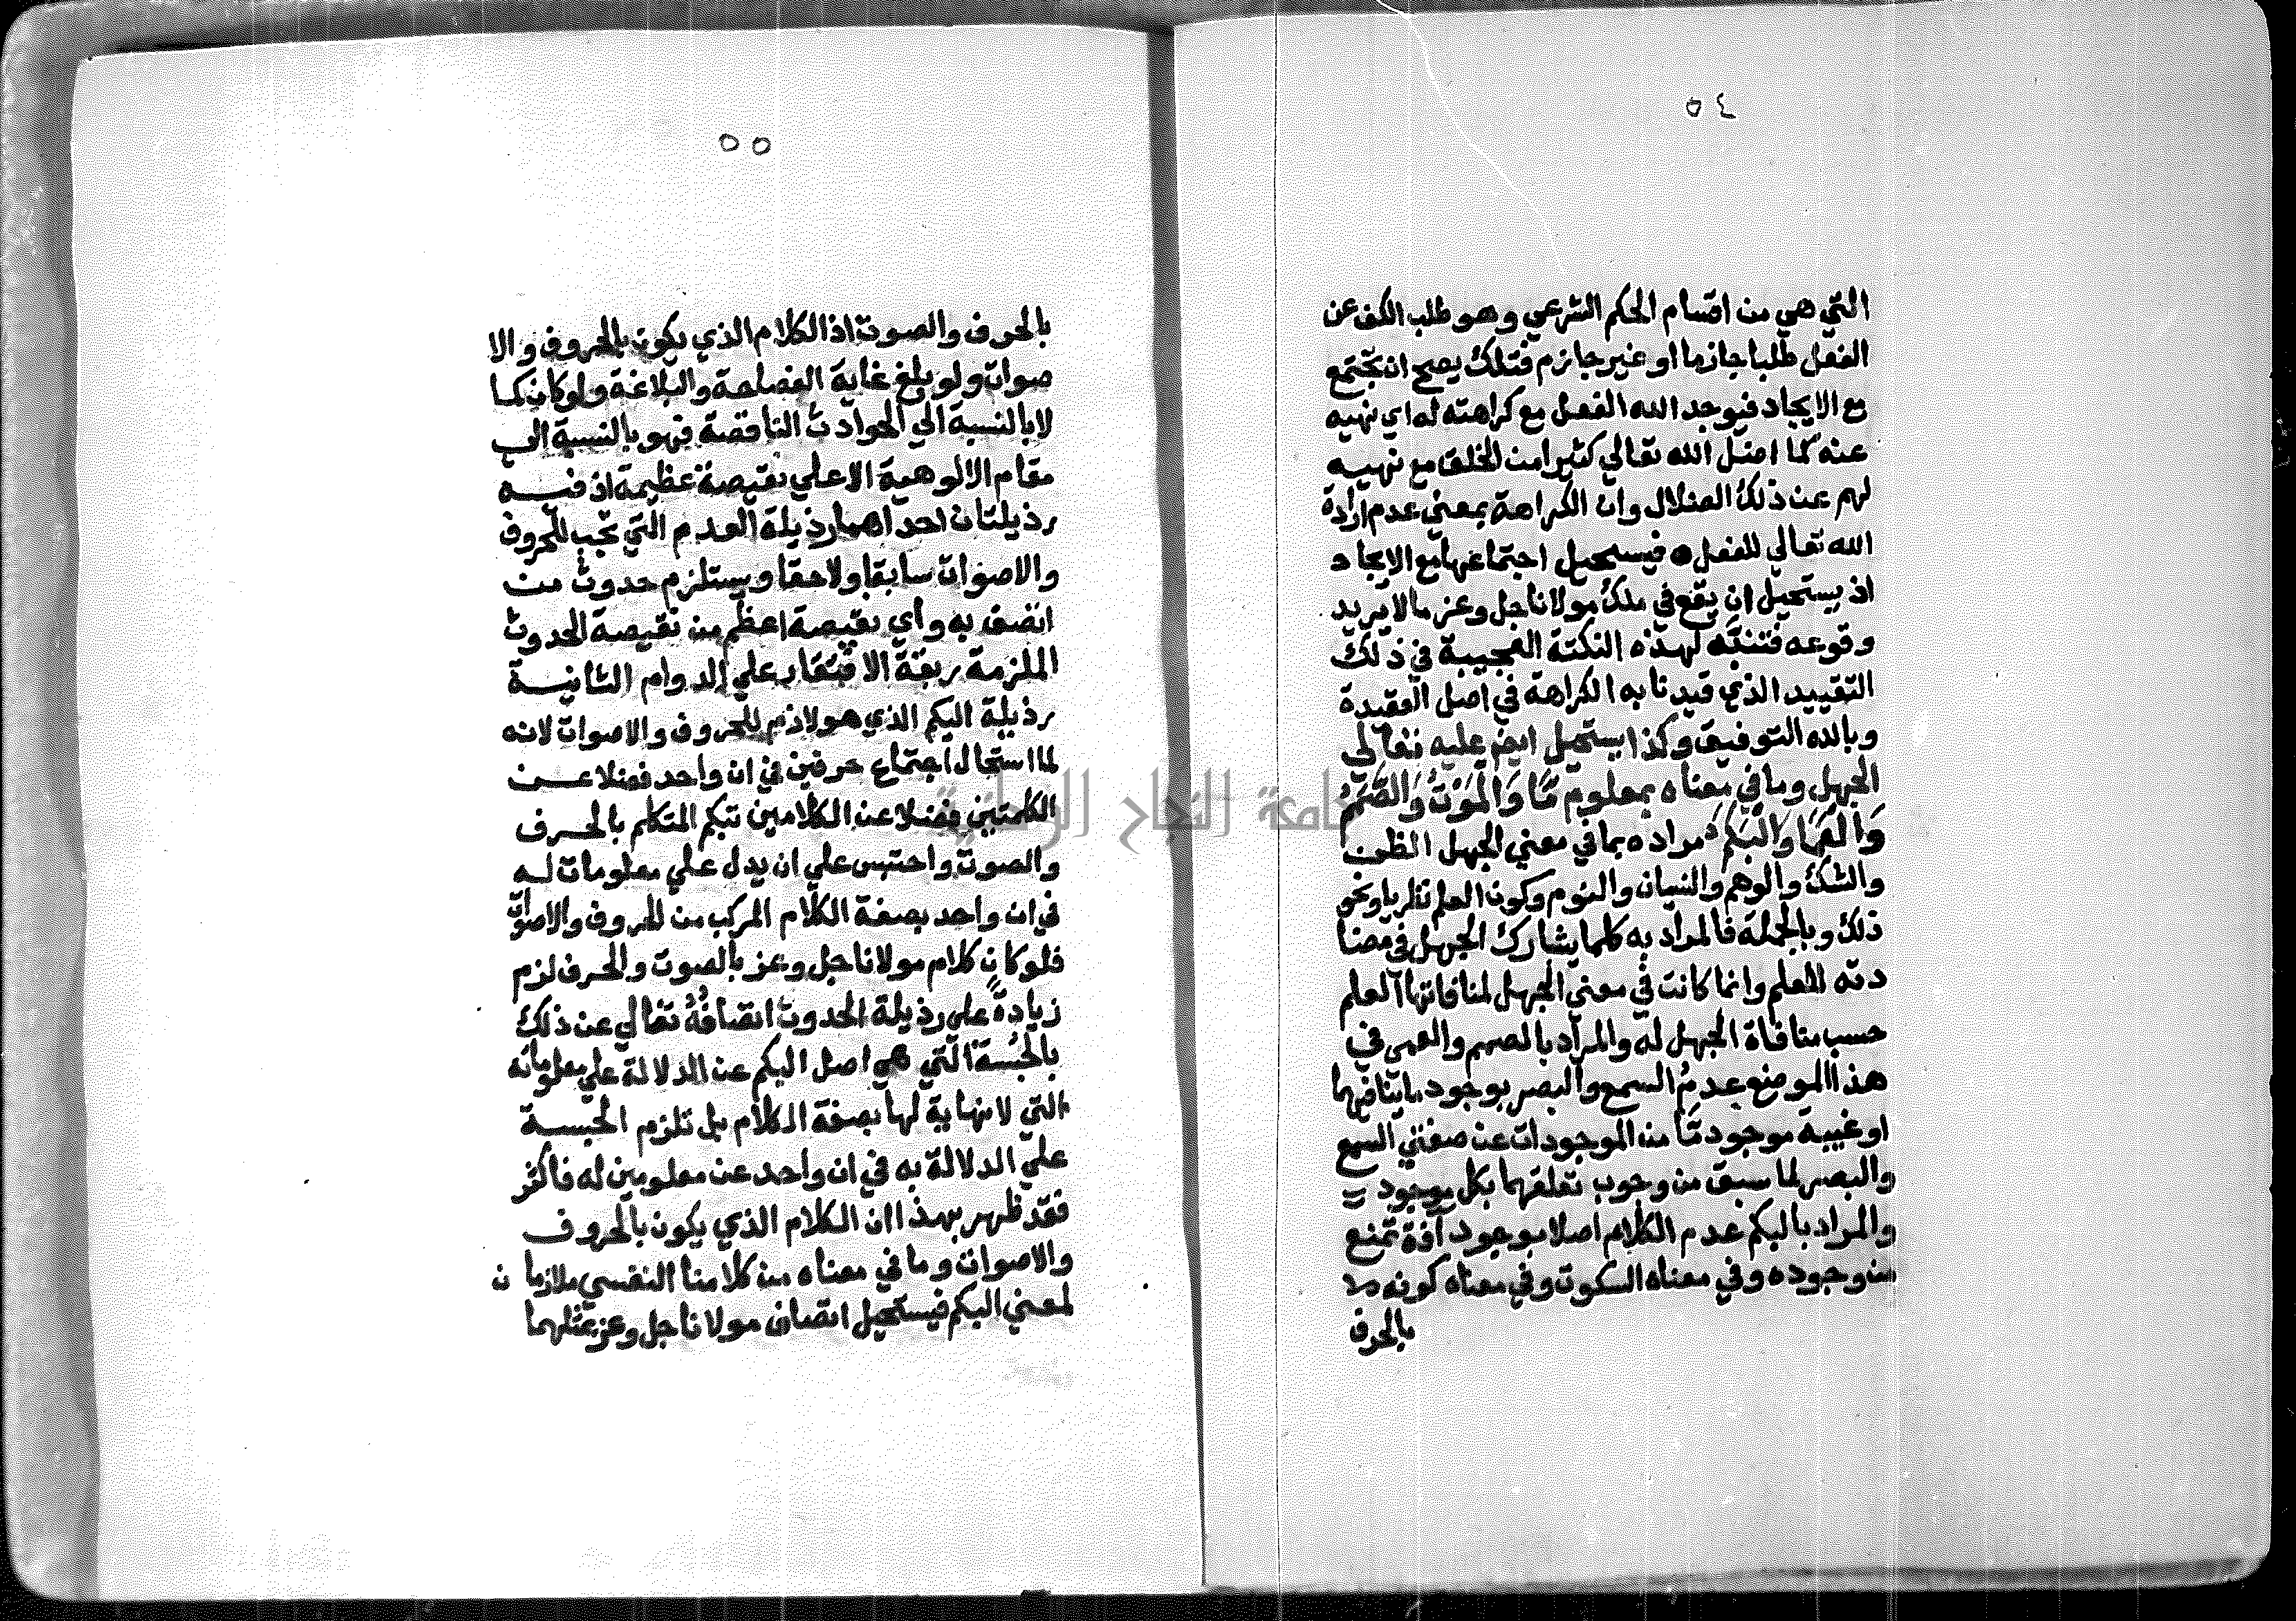 ٥٤
التي هي من اقسام الحكم الشرعي وهو طلب الكف عن
الفعل طلبا جازما او غير جازم فتلك يصح ان تجتمع
مع الايجاد فيوجد الله الفعل مع كراهته له اي نهيه
عنه كما اضل الله تعالي كثيرا من الخلق مع نهيه
لهم عن ذلك الضلال وان الكراهة بمعني عدم ارادة
الله تعالي للفعل فيستحيل اجتماعها مع الايجاد
اذ يستحيل ان يقع في ملك مولانا جل وعز ما لا يريد
وقوعه فتنبّه لهذه النكتة العجيبة في ذلك
التقييد الذي قيدنا به الكراهة في اصل العقيدة
وبالله التوفيق وكذا يستحيل ايض عليه تعالي
الجهل وما في معناه بمعلوم مّا وَالْمَوْتُ وَالصَّمَمُ
وَالْعَمَا وَالْبَكَمُ مراده بما في معني الجهل الظن
والشك والوهم والنسيان والنوم وكون العلم نظريا ونحو
ذلك وبالجملة فالمراد به كلما يشارك الجهل في مضا
دته للعلم وانما كانت في معني الجهل لمنافاتها العلم
حسب منافاة الجهل له والمراد بالصمم والعمي في
هذا الموضع عدمُ السمع والبصر بوجود ما ينافيهما
او غيبة موجود مّا من الموجودات عن صفتي السمع
والبصر لما سبق من وجوب تعلقهما بكل موجود
والمراد بالبكم عدم الكلام اصلا بوجود آفة تمنع
من وجوده وفي معناه السكوت وفي معناه كونه
بالحرف
٥٥
بالحرف والصوت اذ الكلام الذي يكون بالحروف والا
صوات ولو بلغ غاية الفصاحة والبلاغة ولو كان كما
لا بالنسبة الي الحوادث الناقصة فهو بالنسبة الي
مقام الالوهية الاعلي نقيصة عظيمة اذ فيه
رذيلتان احداهما رذيلة العدم التي تجب للحروف
والاصوات سابقا ولاحقا ويستلزم حدوث من
اتصف به واي نقيصة اعظم من نقيصة الحدوث
الملزمة ربقة الافتقار علي الدوام الثانية
رذيلة البكم الذي هو لازم للحروف والاصوات لانه
لما استحال اجتماع حرفين في ان واحد فضلا عن
الكلمتين فضلا عن الكلامين تبكم المتكلم بالحرف
والصوت واحتبس علي ان يدل علي معلومات له
في ان واحد بصفة الكلام المركب من الحروف والاصوات
فلو كان كلام مولانا جل وعز بالصوت والحرف لزم
زيادةً علي رذيلة الحدوث اتصافُهُ تعالي عن ذلك
بالحُبسة التي هي اصل البكم عن الدلالة علي معلوماته
التي لا نهاية لها بصفة الكلام بل تلزم الحبسة
علي الدلالة به في ان واحد عن معلومين له فاكثر
فقد ظهر بهذا ان الكلام الذي يكون بالحروف
والاصوات وما في معناه من كلامنا النفسي ملازما ن
لمعني البكم فيستحيل اتصاف مولانا جل وعز بمثلهما
جامعة النجاح الوطنية